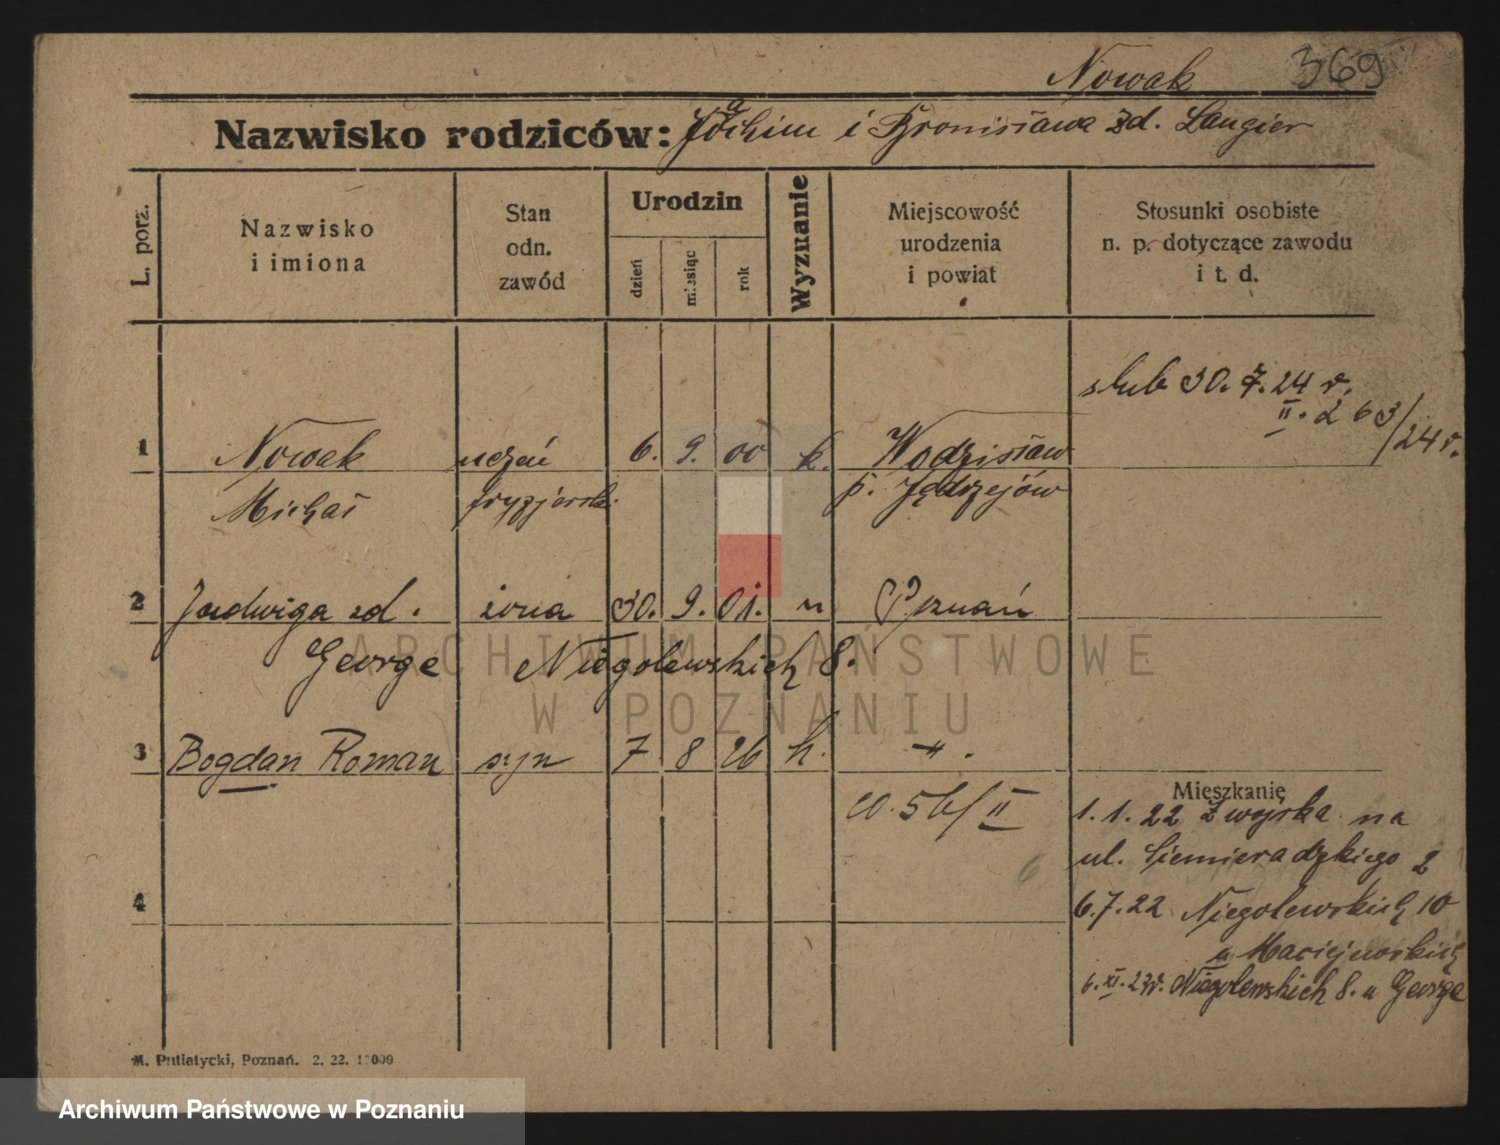 Nowak 369
Nazwisko rodziców: Jachim i Bronisława zd. Langier
L. porz.
Nazwisko
i imiona
Stan
odn.
zawód
Urodzin
dzień
miesiąc
rok
Wyznanie
Miejscowość
urodzenia
i powiat
Stosunki osobiste
n. p. dotyczące zawodu
i t. d.
ślub 30. 7. 24 r.
II. 263/24 r.
1 Nowak uczeń 6. 9. 00 k. Wodzisław
Michał fryzjerski p. Jędrzejów
2 Jadwiga zd. żona 30. 9. 01. " Poznań
George Niegolewskich 8.
3 Bogdan Roman syn 7 8 26 k. " .
56/II
Mieszkanie
1. 1. 22 z wojska na
ul. Siemieradzkiego 2
4
6.7.22 Niegolewskich 10
u Maciejewskich
6. XI. 23r. Niegolewskich 8. u George
M. Putiatycki, Poznań. 2. 22. 1000
ARCHIWUM PAŃSTWOWE
W POZNANIU
Archiwum Państwowe w Poznaniu